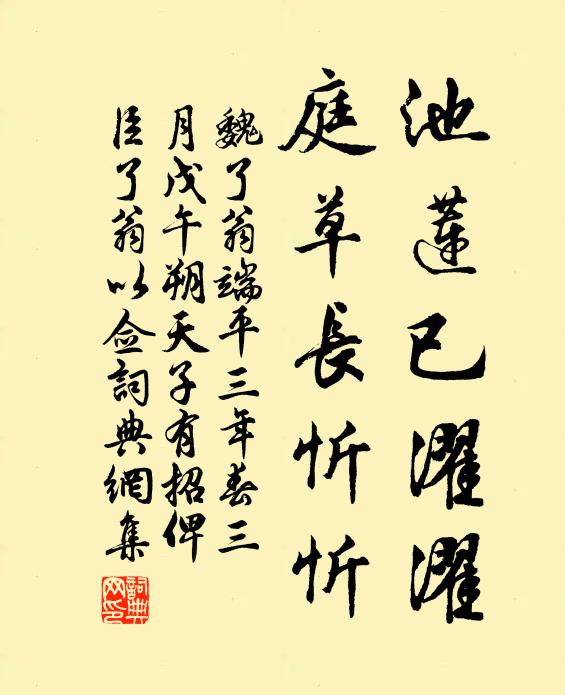 池蓮已濯濯
庭草長忻忻
魏了翁端平三年春三
月戊午朔天子有招俾
臣了翁以僉詞典網集
詞典網印